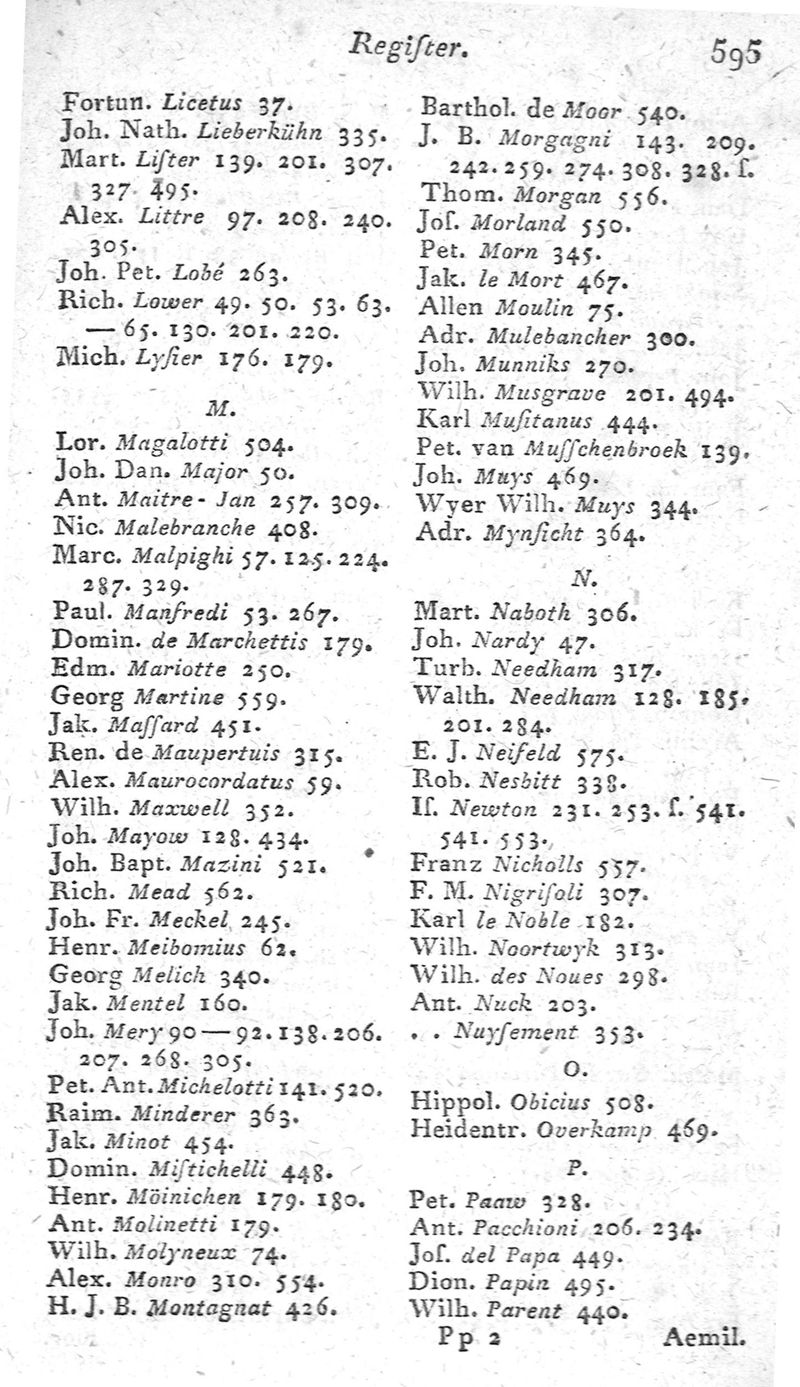 Regiſter. 595
Fortun. Licetus 37.
Joh. Nath. Lieberkühn 335.
Mart. Liſter 139. 201. 307.
327. 495.
Alex. Littre 97. 208. 240.
305.
Joh. Pet. Lobé 263.
Rich. Lower 49. 50. 53. 63.
— 65. 130. 201. 220.
Mich. Lyſier 176. 179.
M.
Lor. Magalotti 504.
Joh. Dan. Major 50.
Ant. Maitre-Jan 257. 309.
Nic. Malebranche 408.
Marc. Malpighi 57. 125. 224.
287. 329.
Paul. Manfredi 53. 267.
Domin. de Marchettis 179.
Edm. Mariotte 250.
Georg Martine 559.
Jak. Maſſard 451.
Ren. de Maupertuis 315.
Alex. Maurocordatus 59.
Wilh. Maxwell 352.
Joh. Mayow 128. 434.
Joh. Bapt. Mazini 521.
Rich. Mead 562.
Joh. Fr. Meckel 245.
Henr. Meibomius 62.
Georg Melich 340.
Jak. Mentel 160.
Joh. Mery 90 — 92. 138. 206.
207. 268. 305.
Pet. Ant. Michelotti 141. 520.
Raim. Minderer 363.
Jak. Minot 454.
Domin. Miſtichelli 448.
Henr. Möinichen 179. 180.
Ant. Molinetti 179.
Wilh. Molyneux 74.
Alex. Monro 310. 554.
H. J. B. Montagnat 426.
Barthol. de Moor 540.
J. B. Morgagni 143. 209.
242. 259. 274. 308. 328. ſ.
Thom. Morgan 556.
Joſ. Morland 550.
Pet. Morn 345.
Jak. le Mort 467.
Allen Moulin 75.
Adr. Mulebancher 300.
Joh. Munniks 270.
Wilh. Musgrave 201. 494.
Karl Muſitanus 444.
Pet. van Muſſchenbroek 139.
Joh. Muys 469.
Wyer Wilh. Muys 344.
Adr. Mynſicht 364.
N.
Mart. Naboth 306.
Joh. Nardy 47.
Turb. Needham 317.
Walth. Needham 128. 185.
201. 284.
E. J. Neifeld 575.
Rob. Nesbitt 338.
Iſ. Newton 231. 253. ſ. 541.
541. 553.
Franz Nicholls 557.
F. M. Nigriſoli 307.
Karl le Noble 182.
Wilh. Noortwyk 313.
Wilh. des Noues 298.
Ant. Nuck 203.
. . Nuyſement 353.
O.
Hippol. Obicius 508.
Heidentr. Overkamp 469.
P.
Pet. Paaw 328.
Ant. Pacchioni 206. 234.
Joſ. del Papa 449.
Dion. Papin 495.
Wilh. Parent 440.
Pp 2 Aemil.